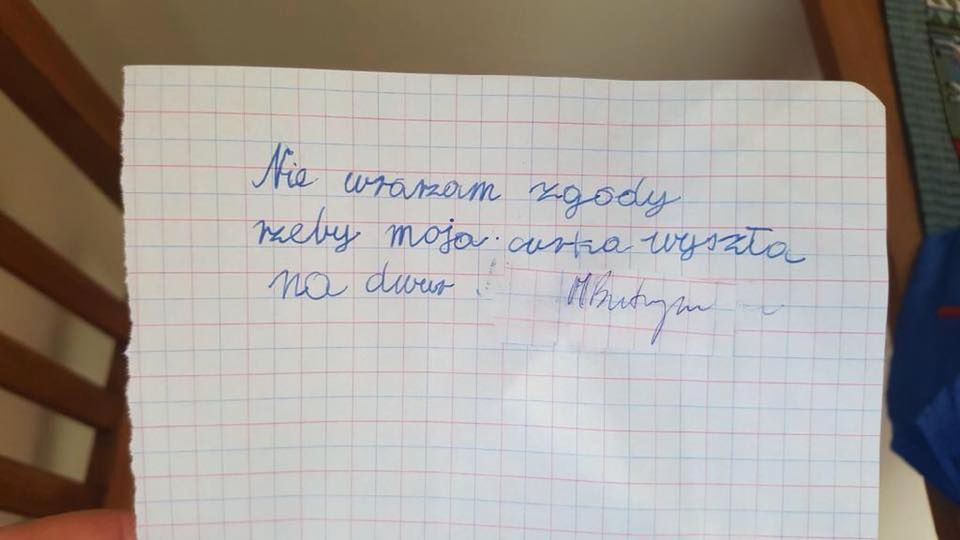 Nie wrarzam zgody
rzeby moja curka wyszła
na dwur.
MButrym